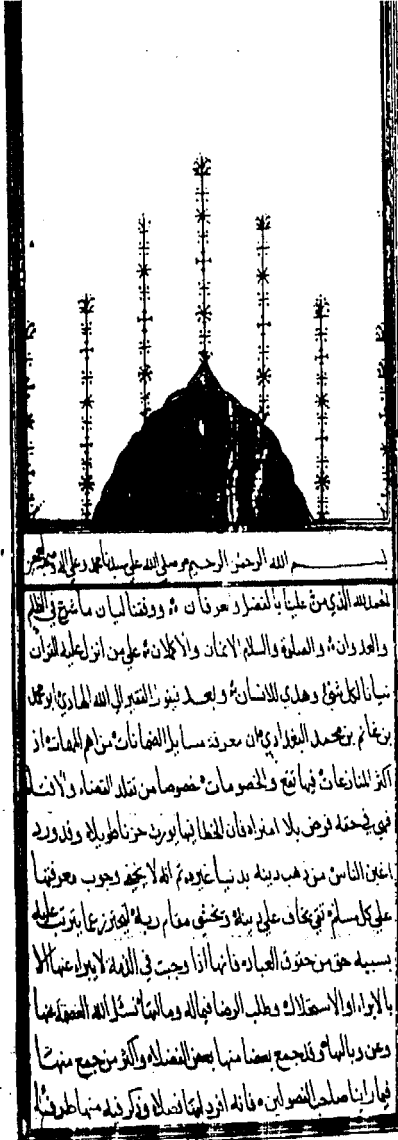 بسم الله الرحمن الرحيم وصلى الله على سيدنا محمد وعلى اله وصحبه
الحمد لله الذي من علينا بالفضل والعرفان ووفقنا لبيان ما شرع في الظلم
والعدوان والصلوة والسلام الاتمان والاكملان على من انزل عليه القران
تبيانا لكل شئ وهدى للانسان وبعد فيقول الفقير الى الله الهادي ابو محمد
بن غانم بن محمد البغدادي ان معرفة مسايل الضمانات من اهم المهمات اذ
اكثر المنازعات فيها تقع والخصومات خصوصا من تقلد القضاء والافتاء
فهي في حقه فرض بلا امتراء فان الخطا فيها يورث حزنا طويلا وقد ورد
اغبن الناس من ذهب دينه بدنيا غيره ثم انه لا يخفى وجوب معرفتها
على كل مسلم تقي يخاف على دينه ويخشى مقام ربه ليحترز عما يترتب عليه
بسببه حق من حقوق العباد فانها اذا وجبت في الذمة لا يبراء عنها الا
بالابراء او الاستحلال وطلب الرضا في ماله وما لها نسئل الله العصمة عنها
وعن وبالها وقد جمع بعضا منها بعض الفضلاء واكثر من جمع منها
فيما راينا صاحب الفصولين فانه افرد لها فصلا وذكر فيه منها طرفا